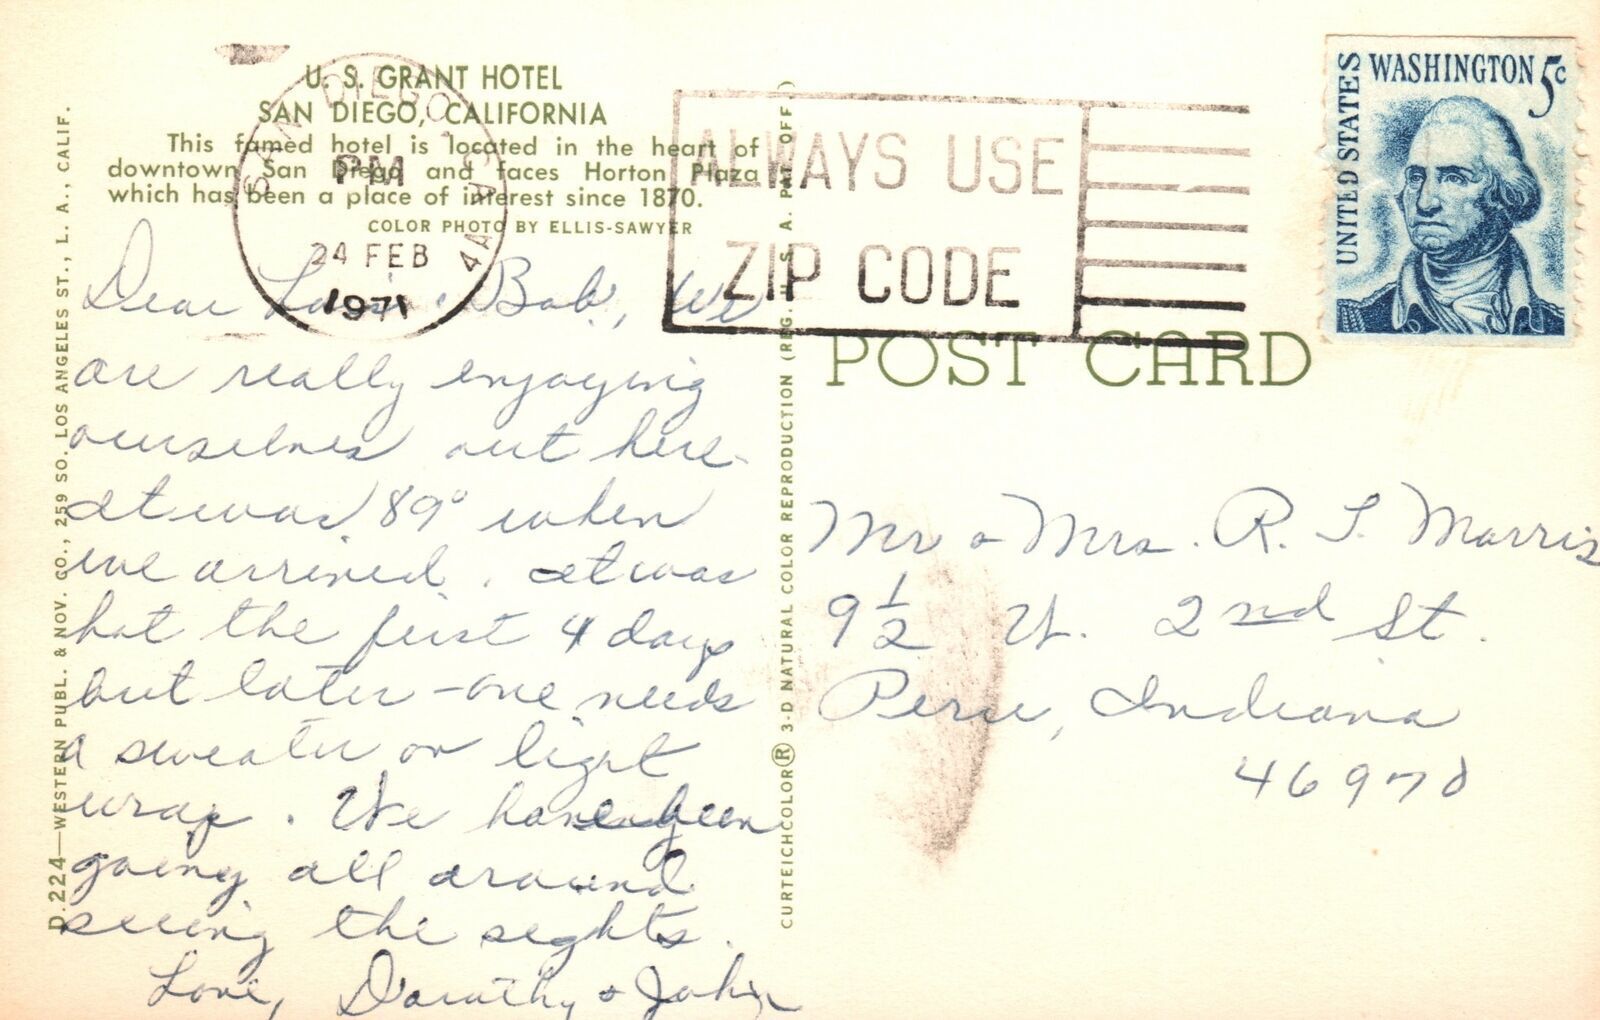 U. S. GRANT HOTEL
SAN DIEGO, CALIFORNIA
This famed hotel is located in the heart of
downtown San Diego and faces Horton Plaza
which has been a place of interest since 1870.
COLOR PHOTO BY ELLIS-SAWYER
D.224—WESTERN PUBL. & NOV. CO., 259 SO. LOS ANGELES ST., L. A., CALIF.
SAN DIEGO, CA
PM
24 FEB
1971
ALWAYS USE
ZIP CODE
UNITED STATES
WASHINGTON 5c
POST CARD
CURTEICHCOLOR® 3-D NATURAL COLOR REPRODUCTION (REG. U. S. A. PAT. OFF.)
Dear Bob, We
are really enjoying
ourselves out here-
It was 89° when
we arrived. It was
hot the first 4 days
but later - one needs
a sweater or light
wrap. We have been
going all around
seeing the sights.
Love, Dorothy & John
Mr & Mrs. R. Morris
9 1/2 W. 2nd St.
Peru, Indiana
46970